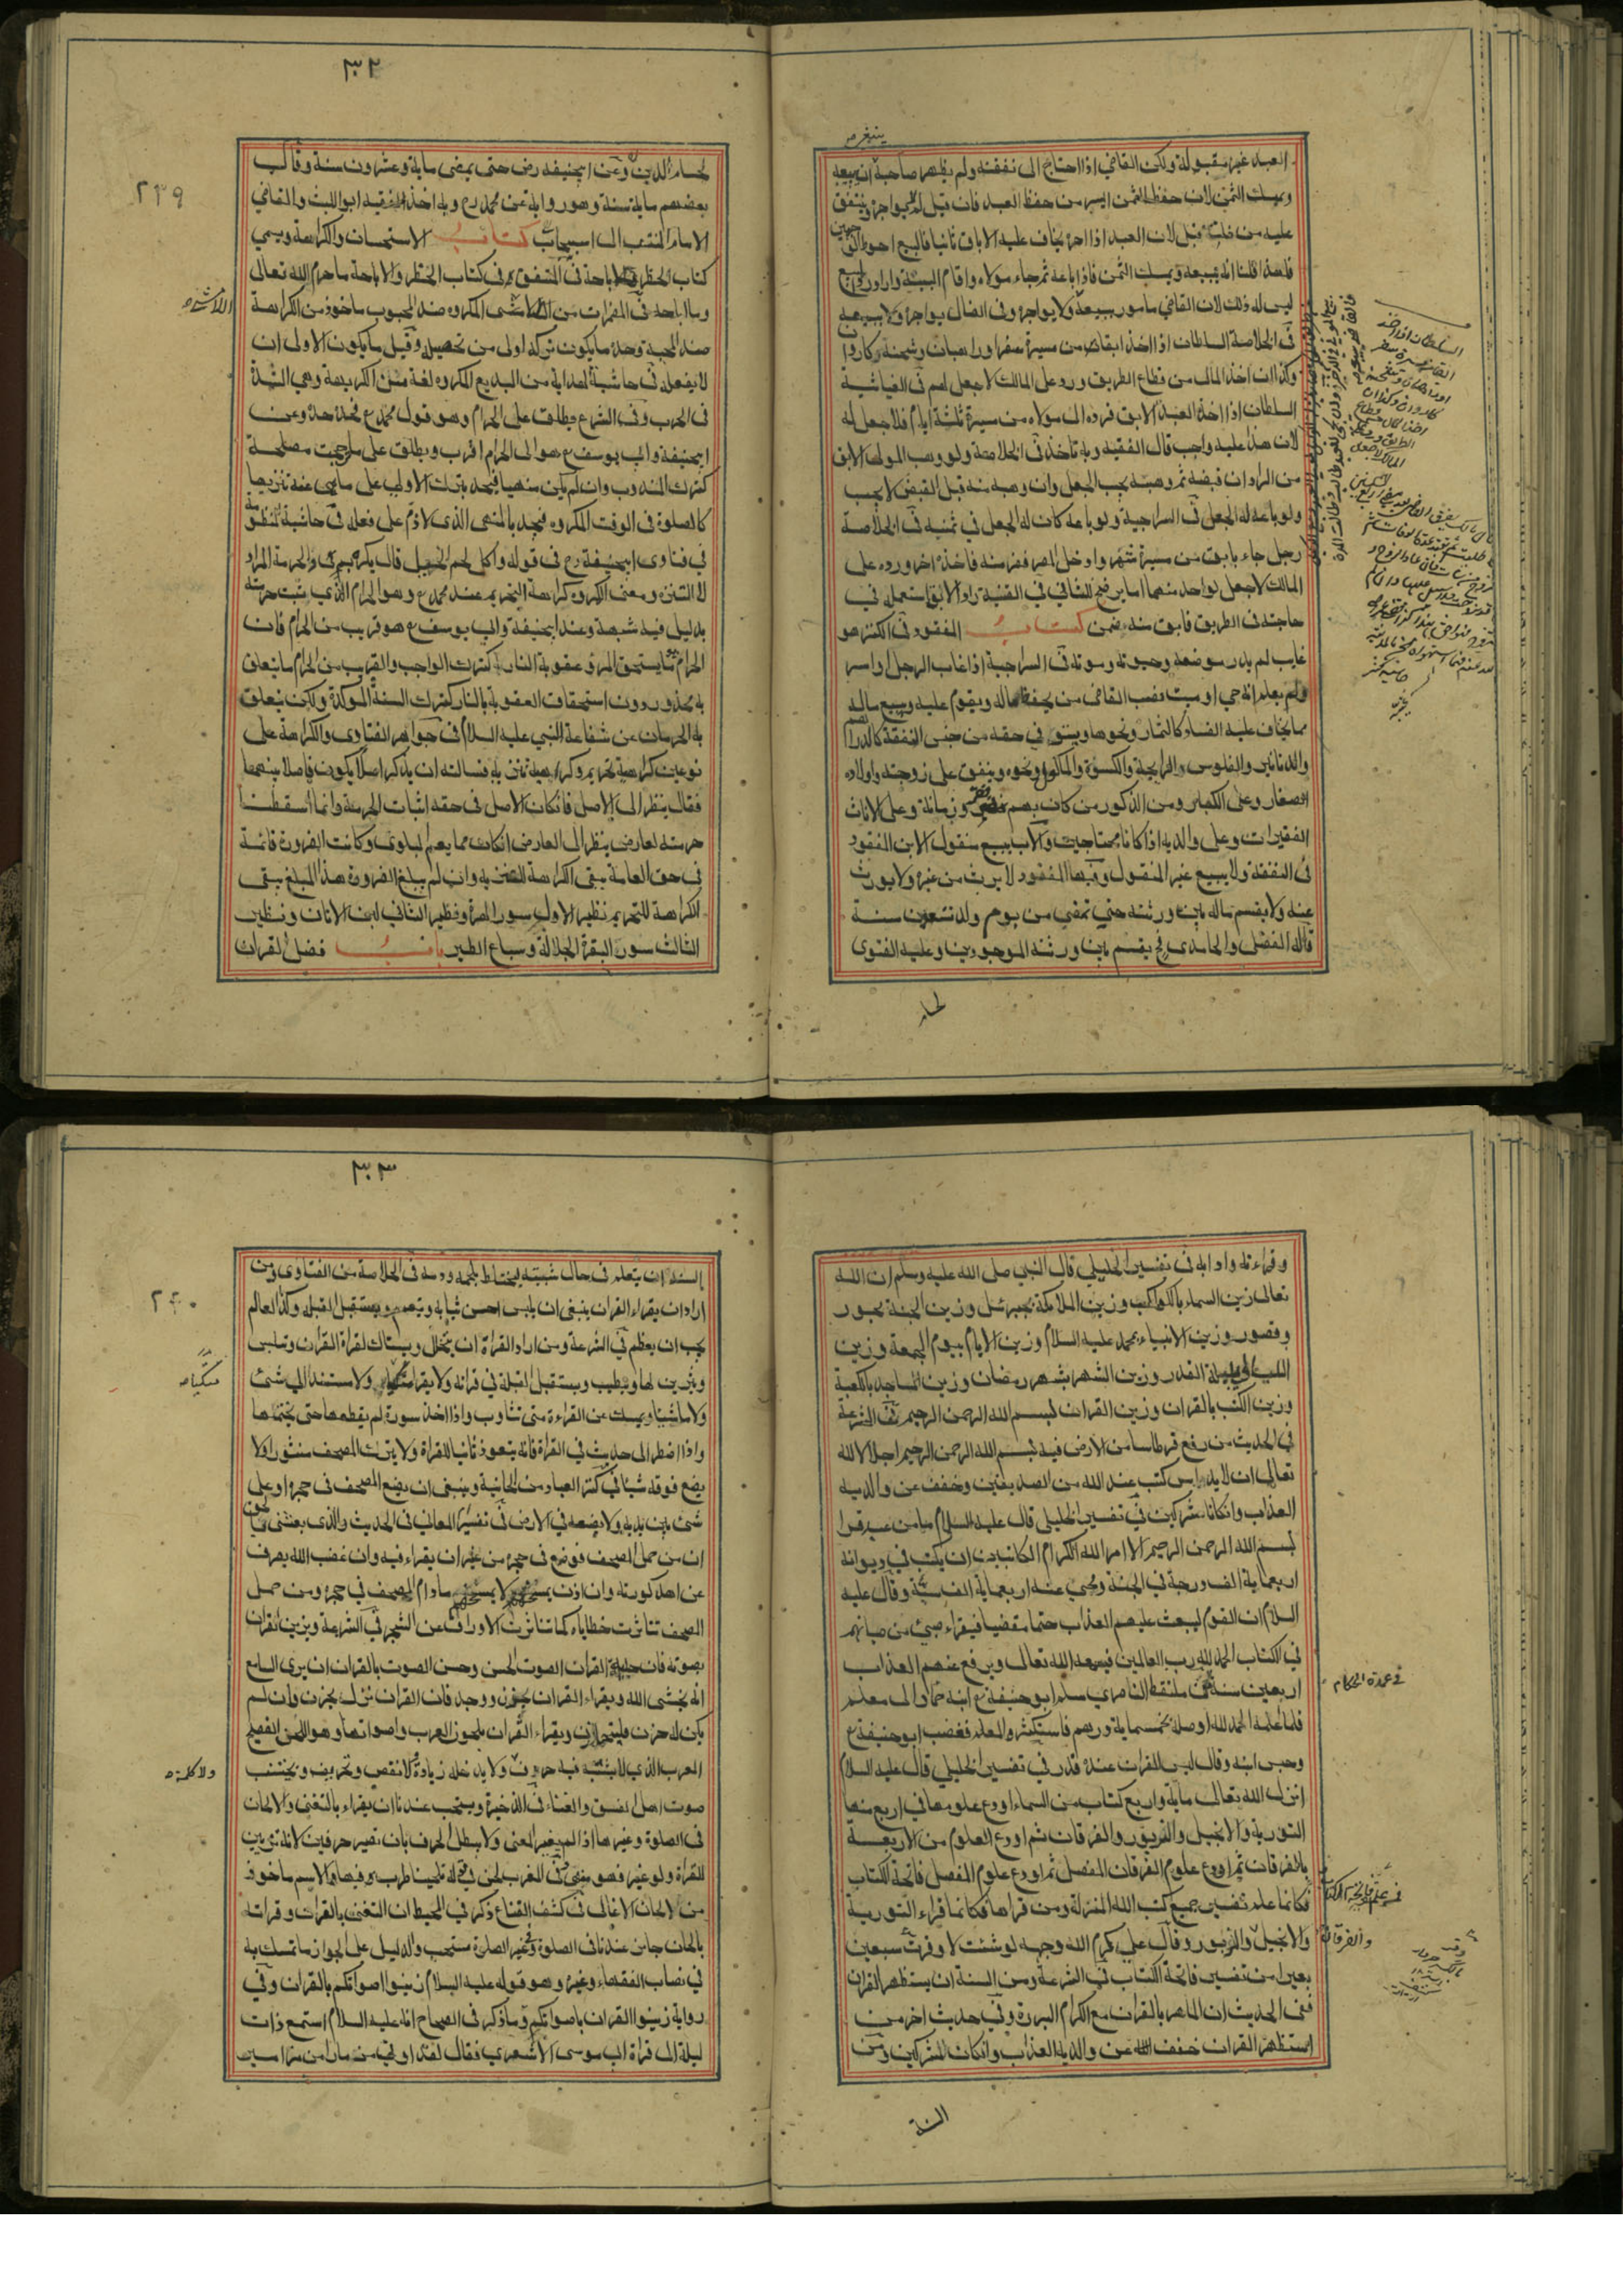 العبد غير مقبولة ولكن القاضي اذا احتاج الى نفقته ولم يظهر صاحبه انه يبيعه
ويمسك الثمن لان حفظ الثمن ايسر من حفظ العبد فان قيل لم يواجره وينفق
عليه من قبل لان العبد اذا اجر يخاف عليه الاباق ثانيا فالبيع احوط
فلهذا قلنا انه يبيعه ويمسك الثمن فاذا باعه ثم جاء مولاه واقام البينة واراد
ليس له ذلك لان القاضي مامور ببيعه ولا يواجره وفي الضال يواجره ولا يبيعه
في الخلاصة السلطان اذا اخذ ابقا من مسيرة سفر او راهبان وشحنة وكاروان
وكذا ان اخذ المال من قطاع الطريق ورد على المالك لا جعل لهم في الغياثية
السلطان اذا اخذ العبد الابق فرده الى مولاه من مسيرة ثلثة ايام فلا جعل له
لان هذا عليه واجب قال الفقيه وبه ناخذ في الخلاصة ولو وهب المولى الابق
من الراد ان قبضه ثم وهبته يجب الجعل وان وهبه منه قبل القبض لا يجب
ولو باعه له الجعل في السراجية ولو باعه كان له الجعل في ثمنه في الخلاصة
رجل جاء بابق من مسيرة شهر وادخل المصر ففر منه فاخذه اخر ورده على
المالك لا جعل لواحد منهما
حاجته في الطريق فابق منه ضمن كتاب المفقود في الكنز هو
غايب لم يدر موضعه وحيوته وموته في السراجية اذا غاب الرجل او اسر
ولم يعلم انه حي او ميت نصب القاضي من يحفظ ماله ويقوم عليه ويبيع ماله
مما يخاف عليه الفساد كالثمار ونحوها في حقه من جنس النفقة كالدراهم
والدنانير والفلوس والماكول ونحوه وينفق على زوجته واولاده
الصغار وعلى الكبار ومن الذكور من كان بهم زمانة وعلى الاناث
الفقيرات وعلى والديه اذا كانا محتاجين والاب يبيع منقول الابن المفقود
في النفقة ولا يبيع غير المنقول وفيها المفقود لا يرث من غيره ولا يورث
عنه ولا يقسم ماله بين ورثته حتى تمضي من يوم ولد تسعون سنة
قاله الفضلي والحامدي ثم يقسم بين ورثته الموجودين وعليه الفتوى
٣٠٢
٢٣٩
لحسام الدين وعن ابيحنيفه رض حتى يمضي ماية وعشرون سنة وقال
بعضهم ماية سنة وهو رواية عن محمد رح وبه اخذ الفقيه ابو الليث والقاضي
الامام المنتسب الى اسبيجاب كتاب الاستحسان والكراهة ويسمى
كتاب الحظر والاباحة في المتفق في كتاب الحظر والاباحة ما حرم الله تعالى
وما اباحه في المضمرات من المكروه ضد المحبوب ماخوذ من الكراهة
ضد المحبة وحده ما يكون تركه اولى من تحصيله وقيل ما يكون الاولى ان
لا يفعله في حاشية الهداية من البديع المكروه لغة من الكريهة وهي الشدة
في الحرب وفي الشرع يطلق على الحرام وهو قول محمد رح وعن
ابيحنيفة وابي يوسف رح هو الى الحرام اقرب ويطلق على
كترك المندوب وان لم يكن منهيا
كالصلوة في الوقت المكروه فيحد بالمنهى الذي لا ذم على فعله في حاشية المنظومة
في فتاوى ابيحنيفة رح في قوله واكل لحم الخيل قال يكره
لا التنزه ومعنى المكروه كراهة التحريم عند محمد رح وهو الحرام الذي يثبت حرمته
بدليل فيه شبهة وعند ابيحنيفة وابي يوسف رح هو قريب من الحرام فان
الحرام ما يستحق المرء عقوبة النار كترك الواجب والقريب من الحرام ما يتعلق
به محذور دون استحقاق العقوبة بالنار كترك السنة الموكدة ولكن يتعلق
به الحرمان عن شفاعة النبي عليه السلام في جواهر الفتاوى والكراهة على
نوعين كراهية تحريم وكراهية تنزيه فسالته ان يذكر اصلا يكون فاصلا بينهما
فقال ينظر الى الاصل فان كان الاصل في حقه اثبات الحرمة وانما اسقطت
حرمته لعارض ينظر الى العارض ان كان مما يعم البلوى وكانت الضرورة قائمة
في حق العامة يبقى الكراهة للتنزيه وان لم يبلغ الضرورة هذا المبلغ يبقى
الكراهة للتحريم نظير الاول سور الهرة ونظير الثاني لبن الاتان ونظير
الثالث سور البقرة الجلالة وسباع الطير باب فضل القران
وقراءته وادابه في تفسير الخليلي قال النبي صلى الله عليه وسلم ان الله
تعالى زين السماء بالكواكب وزين الملائكة بجبرئيل وزين الجنة بحور
وقصور وزين الانبياء بمحمد عليه السلام وزين الايام بيوم الجمعة وزين
الليالي بليلة القدر وزين الشهر بشهر رمضان وزين المساجد بالكعبة
وزين الكتب بالقران وزين القران ببسم الله الرحمن الرحيم في الشرعة
في الحديث من رفع قرطاسا من الارض فيه بسم الله الرحمن الرحيم اجلالا لله
تعالى ان لا يداس كتب عند الله من الصديقين وخفف عن والديه
العذاب وان كانا مشركين في تفسير الخليلي قال عليه السلام ما من عبد قرا
بسم الله الرحمن الرحيم الا امر الله الكرام الكاتبين ان يكتب في ديوانه
اربعماية الف درجة في الجنة ومحي عنه اربعماية الف سيئة وقال عليه
السلام ان القوم ليبعث عليهم العذاب حتما مقضيا فيقراء صبي من صبيانهم
في الكتاب الحمد لله رب العالمين فيسمعه الله تعالى ويرفع عنهم العذاب
اربعين سنة في ملتقط الناصري سلم ابو حنيفة رح ابنه حمادا الى معلم
فلما علمه الحمد لله اوصله بخمسماية درهم فاستكثر المعلم فغضب ابو حنيفة رح
وحبس ابنه وقال ليس للقران عندك قدر في تفسير الخليلي قال عليه السلام
انزل الله تعالى ماية واربع كتاب من السماء اودع علومها في اربع منها
التورية والانجيل والزبور والفرقان ثم اودع العلوم من الاربعة
بالفرقان ثم اودع علوم الفرقان المفصل ثم اودع علوم المفصل فاتحة الكتاب
فكانما علم تفسير جميع كتب الله المنزلة ومن قراها فكانما قراء التورية
والانجيل والزبور وقال علي كرم الله وجهه لو شئت لاوقرت سبعين
بعيرا من تفسير فاتحة الكتاب في الشرعة ومن السنة ان يستظهر القران
ففي الحديث ان الماهر بالقران مع الكرام البررة وفي حديث اخر من
استظهر القران خفف الله عن والديه العذاب وان كانا مشركين ومن
في عمدة الحكام
والفرقان
السنة
٣٠٣
٢٤٠
السنة ان يتعلم في حال شبيبته ليختلط بلحمه ودمه في الخلاصة من الفتاوى ومن
اراد ان يقراء القران ينبغي ان يلبس احسن ثيابه ويتعمم ويستقبل القبلة وكذا العالم
يجب ان يعظم في الشرعة ومن اراد القراة ان يتخلل ويستاك لقراة القران وتلبس
ويتزين لها ويطيب ويستقبل القبلة في قرائه ولا يقرا متكيا ولا مستندا الى شئ
ولا ماشيا ويمسك عن القراءة متى تثاوب واذا اخذ سورة لم يقطعها حتى يختمها
واذا اضطر الى حديث في القراة فانه يتعوذ ثانيا للقراة ولا يترك المصحف منشورا ولا
يضع فوقه شيئا في كنز العباد من الخانية وينبغي ان يضع المصحف في حجره او على
شئ بين يديه ولا يضعه في الارض في تفسير المعاني في الحديث والذي بعثني بالحق
ان من حمل المصحف فوضع في حجره من غير ان يقراء فيه وان غضب الله يصرف
عن اهل كورته وان اذن ما دام المصحف في حجره ومن حمل
المصحف تناثرت خطاياه كما تناثرت الاوراق عن الشجر في الشرعة ويزين القران
بصوته فان حلية القران الصوت الحسن وحسن الصوت بالقران ان يرى السامع
انه يخشى الله ويقراء القران بحزن ووجد فان القران نزل بحزن وان لم
يكن له حزن فليتحازن ويقراء القران بلحون العرب واصواتها وهو اللحن الفصيح
المعرب الذي لا يشتبه فيه حروف ولا يدخله زيادة ولا نقص وتحريف ويجتنب
صوت اهل الفسق والغناء في الذخيرة ويستحب عندنا ان يقراء بالتغني والالحان
في الصلوة وغيرها اذا لم يغير المعنى ولا يبطل الحرف بان تصير حرفين لانه تزيين
للقراة ولو غير فهو منهي في المغرب لحن في قراءته تلحينا طرب فيها والاسم ماخوذ
من الالحان الاغاني في كشف القناع ذكر في المحيط ان التغني بالقران وقراته
بالحان جايز عندنا في الصلوة وفي غير الصلوة مستحب والدليل على الجواز ما تمسك به
في نصاب الفقهاء وغيره وهو قوله عليه السلام زينوا اصواتكم بالقران وفي
رواية زينوا القران باصواتكم وما ذكر في الصحاح انه عليه السلام استمع ذات
ليلة الى قراة ابي موسى الاشعري فقال لقد اوتي من مزامير
ولا كلمة